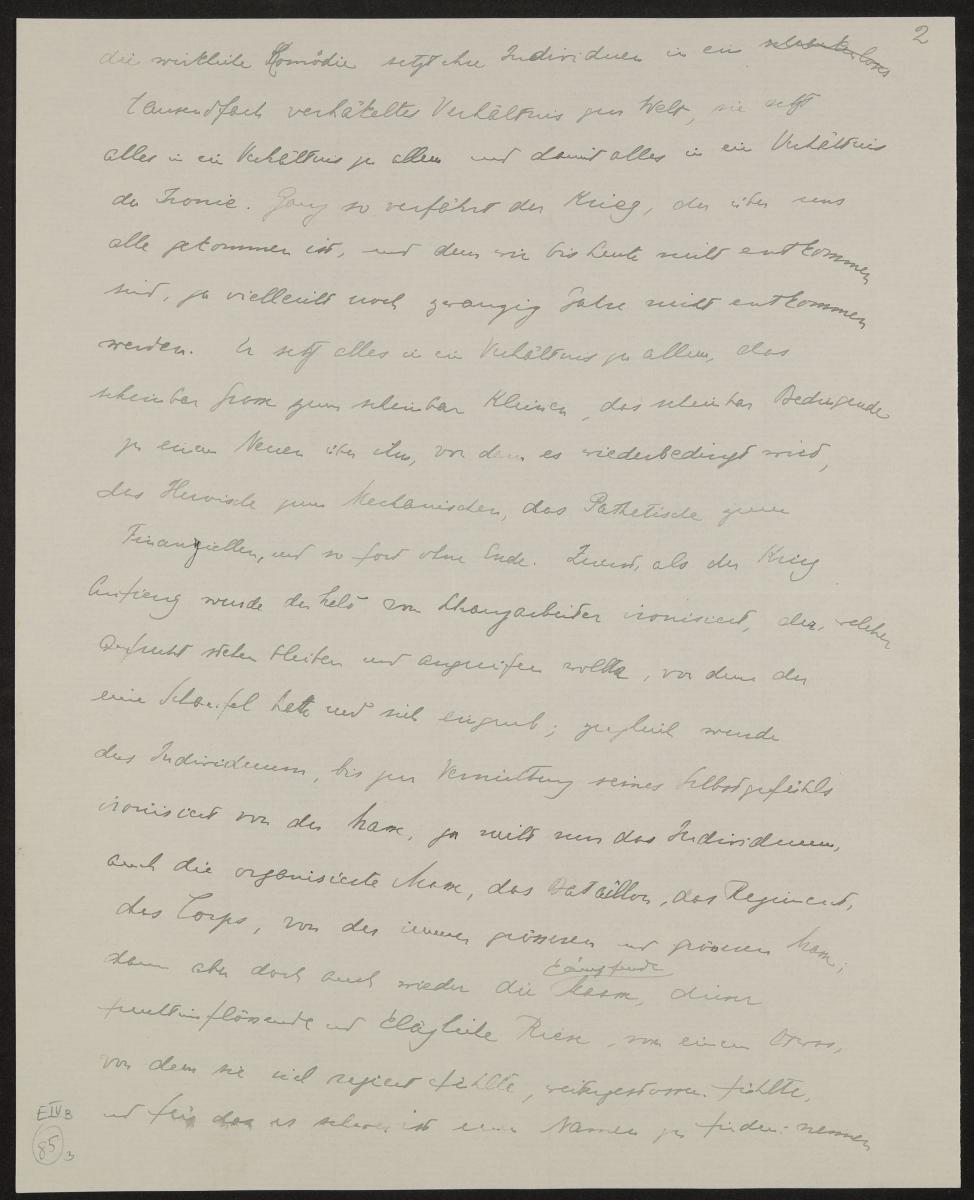 2
die wirkliche Komödie setzt ihre Individuen in ein
tausendfach verhäkeltes Verhältnis zur Welt, sie setzt
alles in ein Verhältnis zu allem und damit alles in ein Verhältnis
der Ironie. Ganz so verfährt der Krieg, der über uns
alle gekommen ist, und dem wir bis heute nicht entkommen
sind, ja vielleicht noch zwanzig Jahre nicht entkommen
werden. Er setzt alles in ein Verhältnis zu allem, das
scheinbar Grosse zum scheinbar Kleinen, das scheinbar Bedingende
zu einem Neuen über ihm, von dem es wiederbedingt wird,
das Heroische zum Mechanischen, das Pathetische zum
Finanziellen, und so fort ohne Ende. Zuerst, als der Krieg
anfieng wurde der Held vom Schanzarbeiter ironisiert, der, welcher
aufrecht stehen bleiben und angreifen wollte, von dem der
eine Schaufel hatte und sich eingrub; zugleich wurde
das Individuum, bis zur Vernichtung seines Selbstgefühls
ironisiert von der Masse, ja nicht nur das Individuum,
auch die organisierte Masse, das Bataillon, das Regiment,
das Corps, von der immer grösseren und grösseren Masse;
kämpfende
dann aber doch auch wieder die Masse, dieser
furchteinflössende und klägliche Riese, von einem Etwas,
von dem sie sich regiert fühlte, weitergestossen fühlte,
und für das es schwer ist einen Namen zu finden: nennen
E IV B
85
3